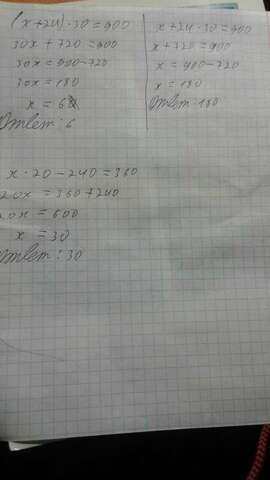 (x+24)·30=900
30x+720=900
30x=900-720
30x=180
x=6
Ответ: 6
x+24·30=900
x+720=900
x=900-720
x=180
Ответ: 180
x·20-240=360
20x=360+240
20x=600
x=30
Ответ: 30